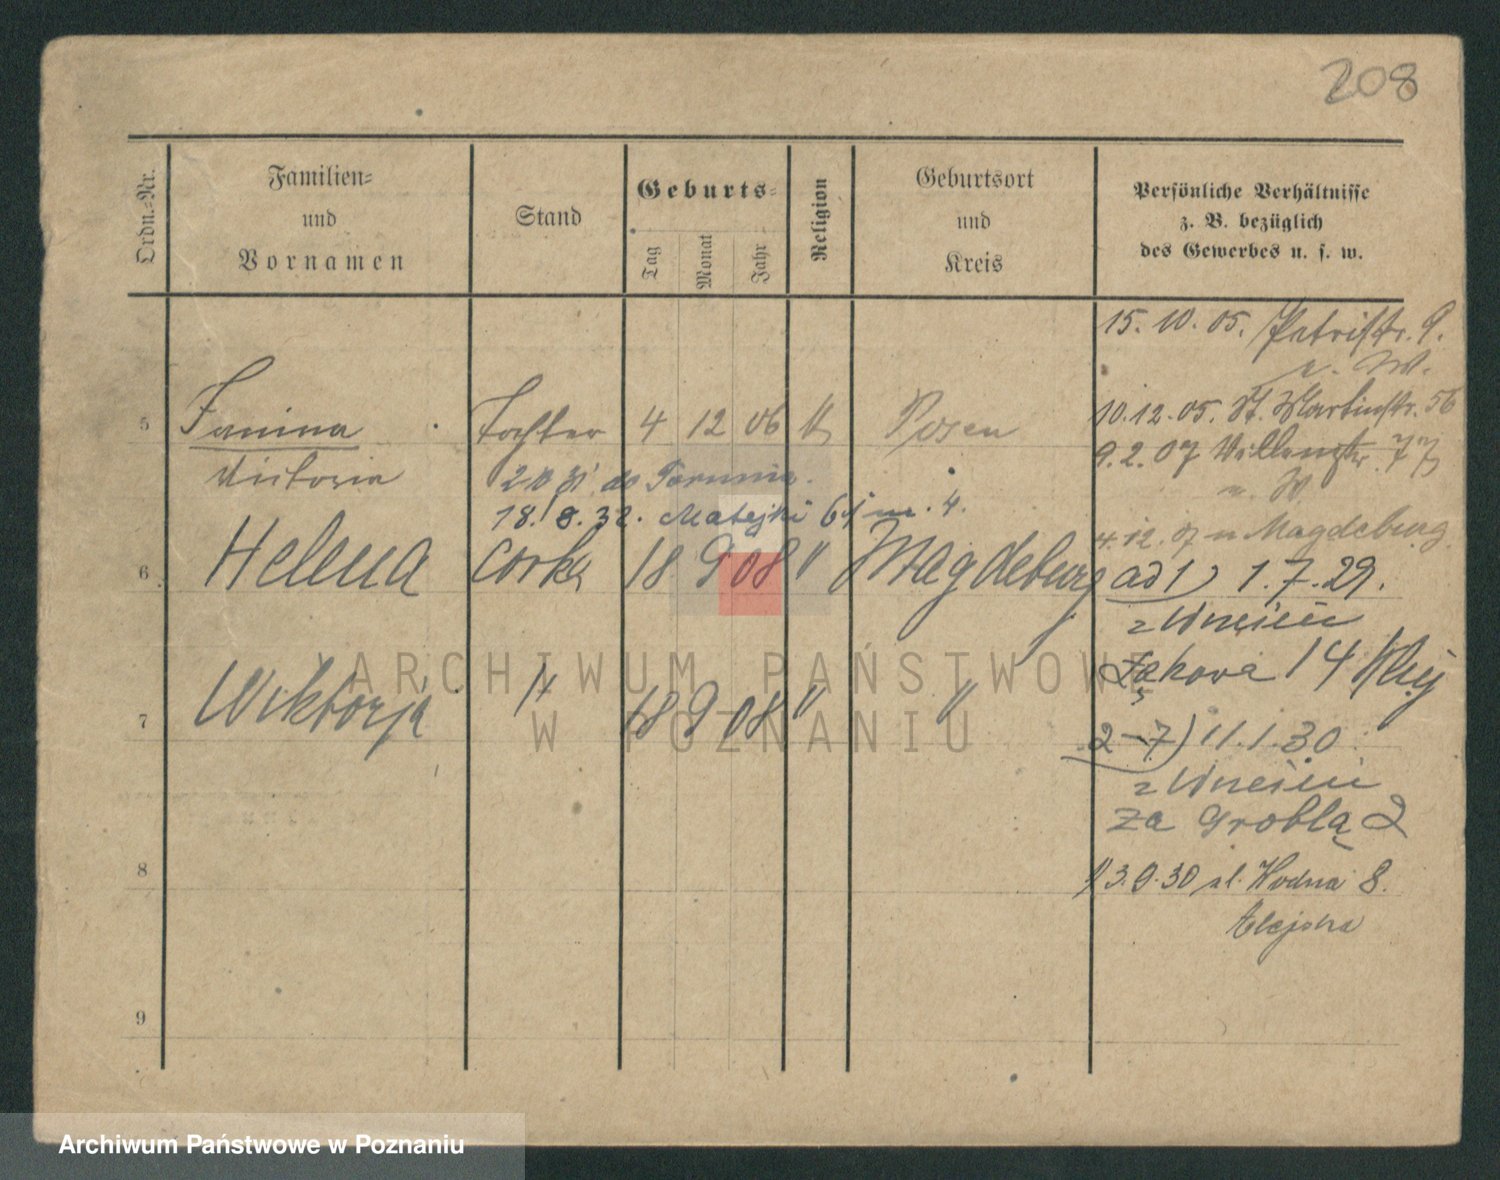 208
Ordn.-Nr.
Familien-
und
Vornamen
Stand
Geburts-
Tag
Monat
Jahr
Religion
Geburtsort
und
Kreis
Persönliche Verhältnisse
z. B. bezüglich
des Gewerbes u. s. w.
15. 10. 05. Petristr. 9.
10.12.05. St. Martinstr. 56
5 Janina Tochter 4 12 06 " Posen
9.2.07
Victoria
do Torunia.
18. 8. 32. Matejki 61 m. 4.
4.12.07 n Magdeburg
6 Helena corka 18 9 08 " Magdeburg
ad 1) 1.7.29.
z Wnęsieii
Łąkowa 14
7 Wiktorja " 18 9 08 " "
2-7) 11.1.30
za Groblą 2
8
13.9.30 ul. Wodna 8.
9
ARCHIWUM PAŃSTWOWE
W POZNANIU
Archiwum Państwowe w Poznaniu